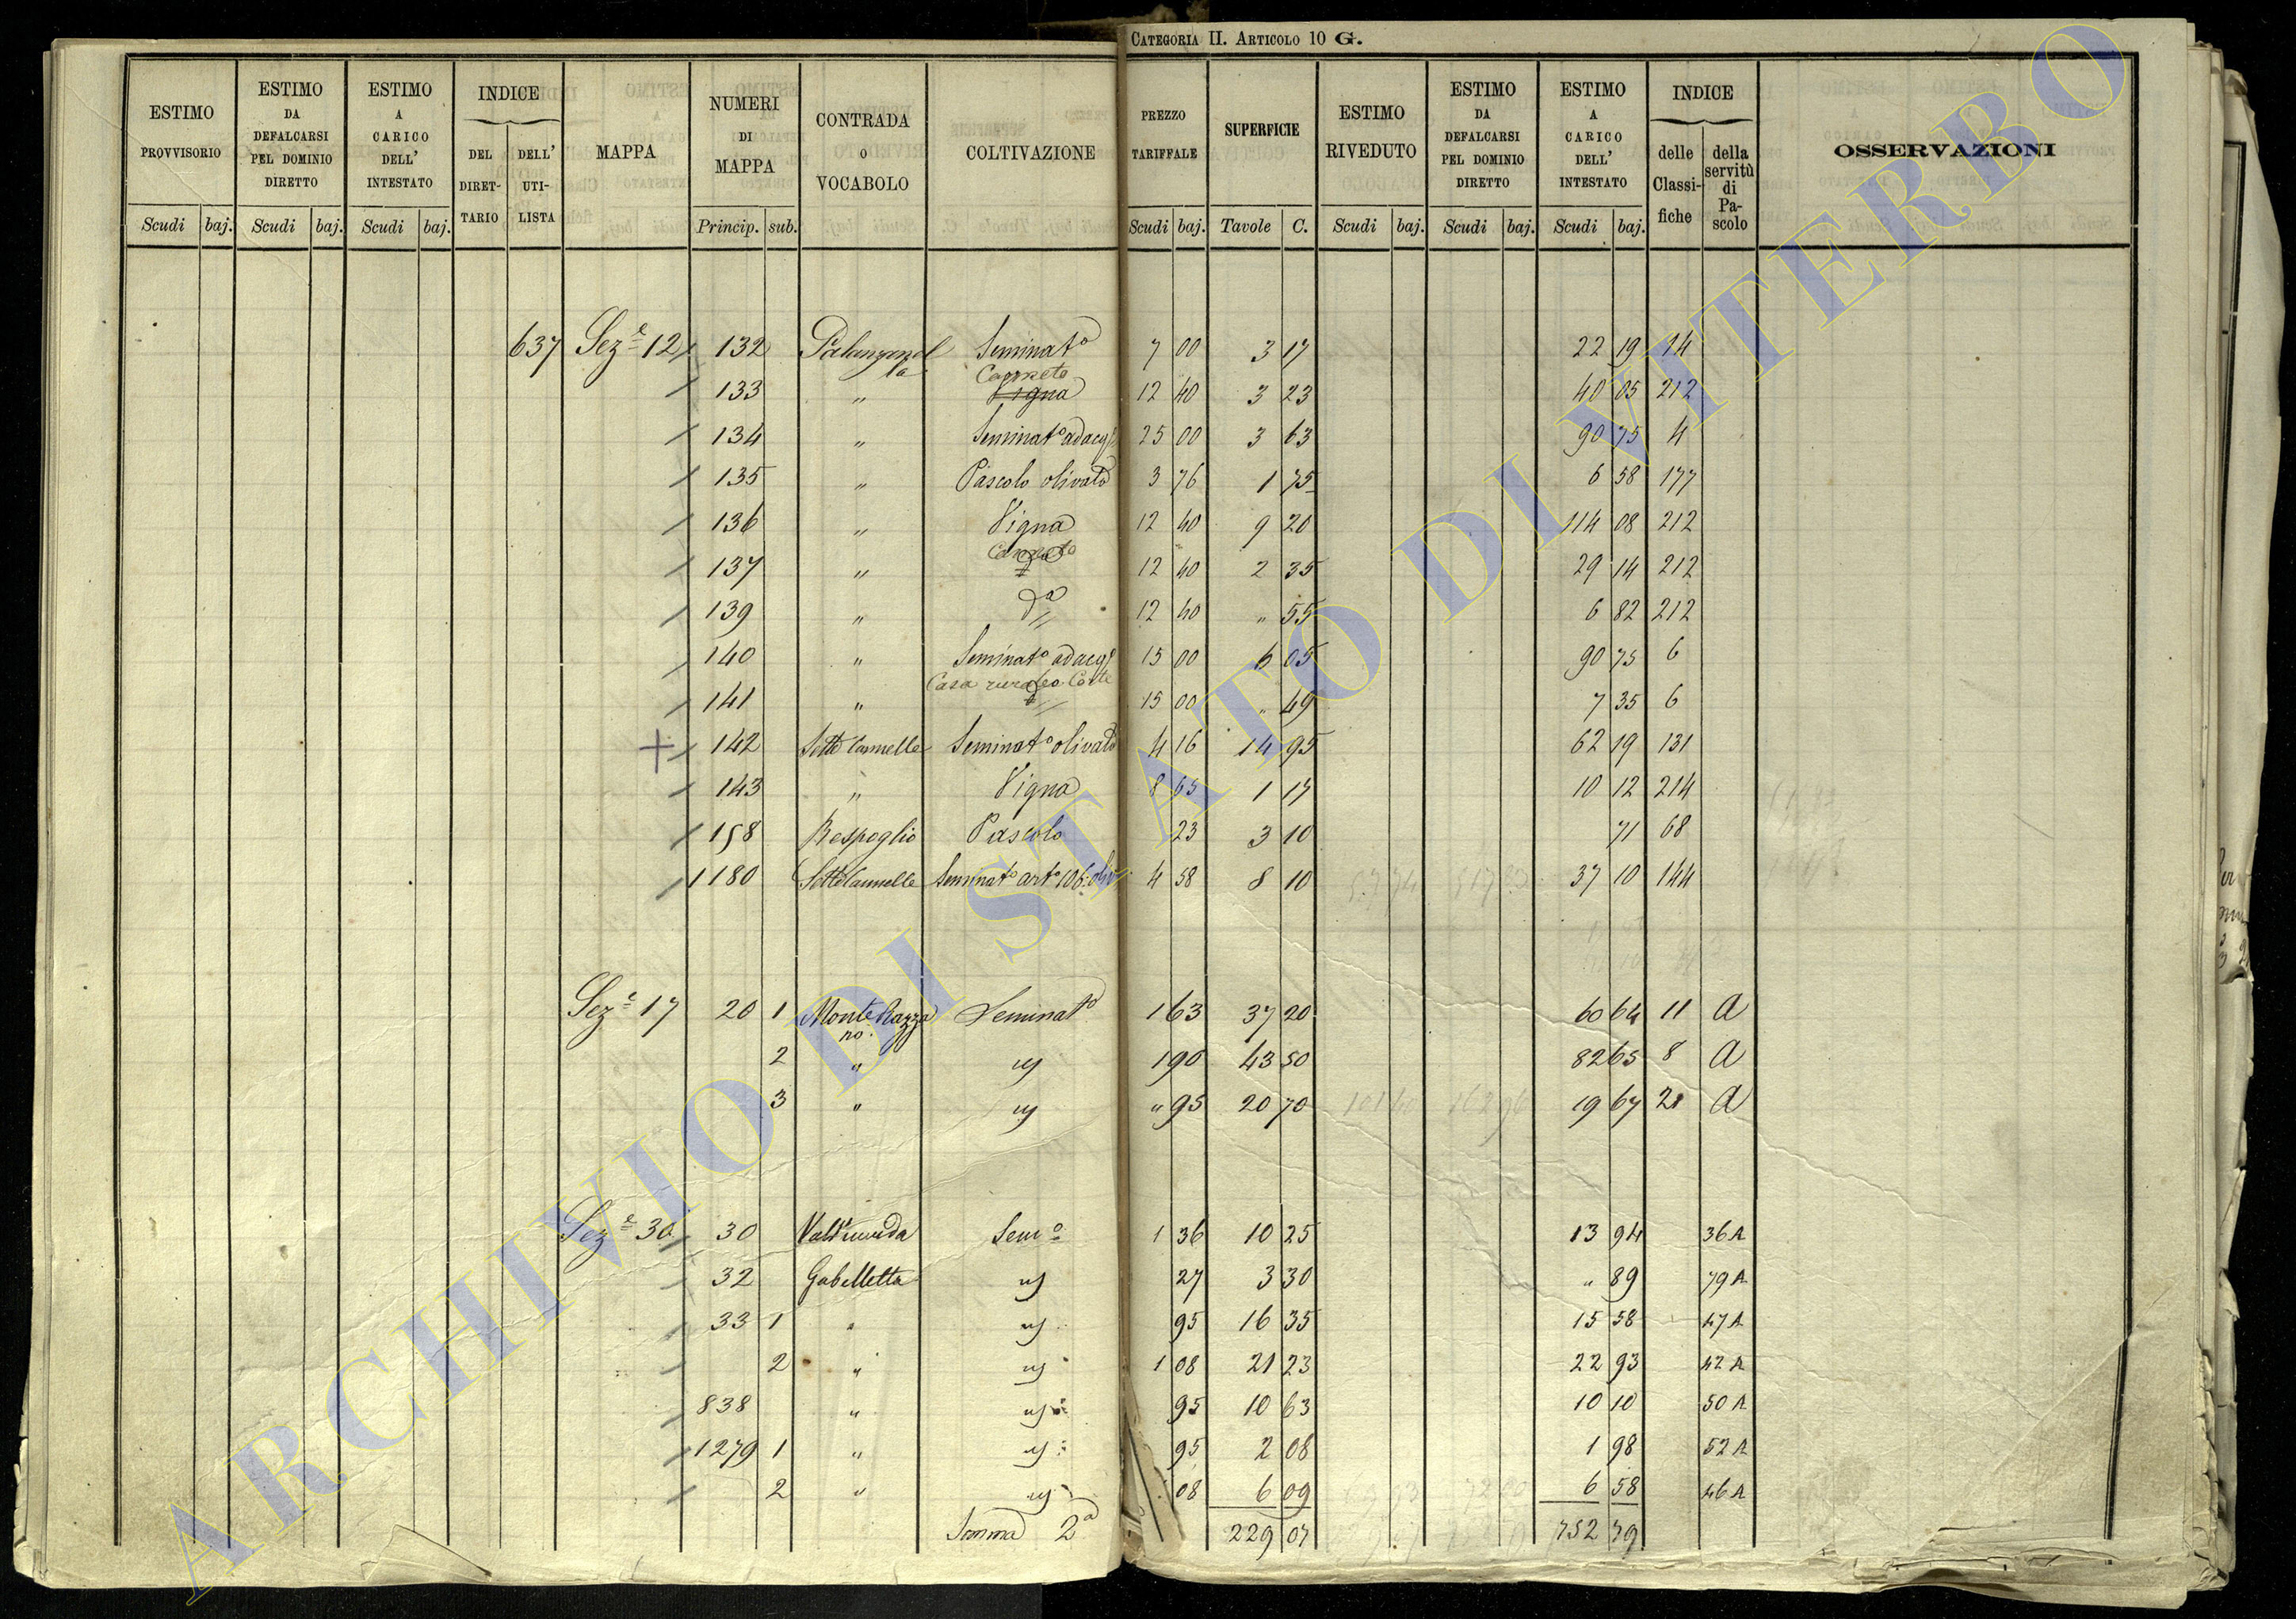 CATEGORIA II. ARTICOLO 10 G.
ESTIMO PROVVISORIO Scudi baj. | ESTIMO DA DEFALCARSI PEL DOMINIO DIRETTO Scudi baj. | ESTIMO A CARICO DELL' INTESTATO Scudi baj. | INDICE DEL DIRET-TARIO | DELL' UTI-LISTA | MAPPA | NUMERI DI MAPPA Princip. sub. | CONTRADA O VOCABOLO | COLTIVAZIONE | PREZZO TARIFFALE Scudi baj. | SUPERFICIE Tavole C. | ESTIMO RIVEDUTO Scudi baj. | ESTIMO DA DEFALCARSI PEL DOMINIO DIRETTO Scudi baj. | ESTIMO A CARICO DELL' INTESTATO Scudi baj. | INDICE delle Classi-fiche | della servitù di Pa-scolo | OSSERVAZIONI
637 Sez.e 12 132 Palanzanella Seminato 7 00 3 17 22 19 14
133 " Canneto Vigna 12 40 3 23 40 05 212
134 " Seminato adacq. 25 00 3 63 90 75 4
135 " Pascolo olivato 3 76 1 75 6 58 177
136 " Vigna 12 40 9 20 114 08 212
137 " Canneto 12 40 2 35 29 14 212
139 " da 12 40 " 55 6 82 212
140 " Seminato adacq. 15 00 6 05 90 75 6
141 " Casa rurale Corte 15 00 " 49 7 35 6
142 Sette Cannelle Seminato olivato 4 16 14 95 62 19 131
143 " Vigna 8 65 1 17 10 12 214
158 Respoglio Pascolo 23 3 10 71 68
1180 Sette Cannelle Seminato arto 106 oliv 4 58 8 10 37 10 144
Sez.e 17 20 1 Monte Razzano Seminato 1 63 37 20 60 64 11 A
2 " 1 90 43 50 82 65 8 A
3 " " 95 20 70 19 67 21 A
Sez.e 30 30 Sem.o 1 36 10 25 13 94 36 A
32 Gabelletta 27 3 30 " 89 79 A
33 1 " 95 16 35 15 58 47 A
2 " 1 08 21 23 22 93 42 A
838 " 95 10 63 10 10 50 A
1279 1 " 95 2 08 1 98 52 A
2 " 08 6 09 6 58 46 A
Somma 2a 229 07 752 79
ARCHIVIO DI STATO DI VITERBO